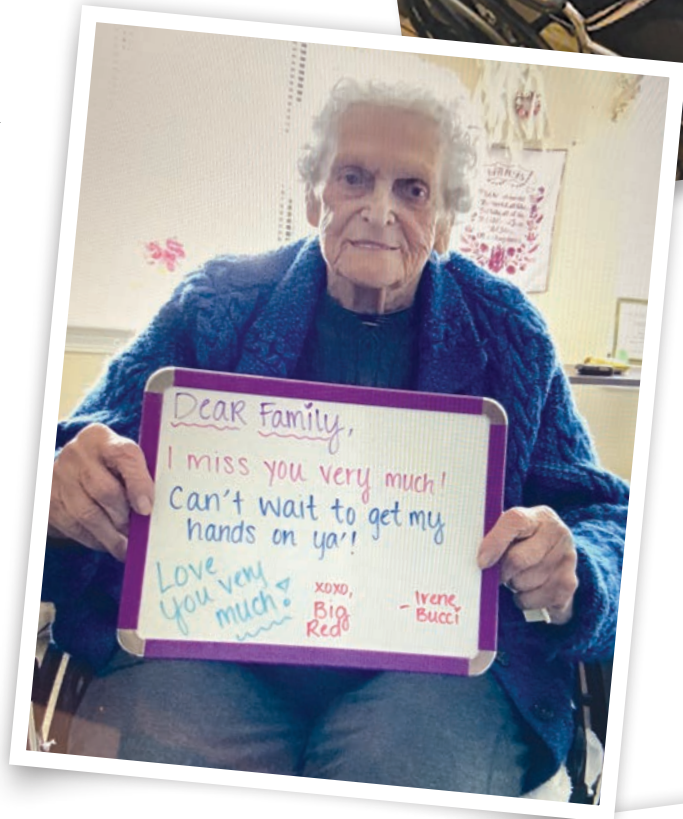 Dear Family,
I miss you very much!
Can't wait to get my
hands on ya'!
Love
you very
much!
xoxo,
Big
Red
- Irene
Bucci